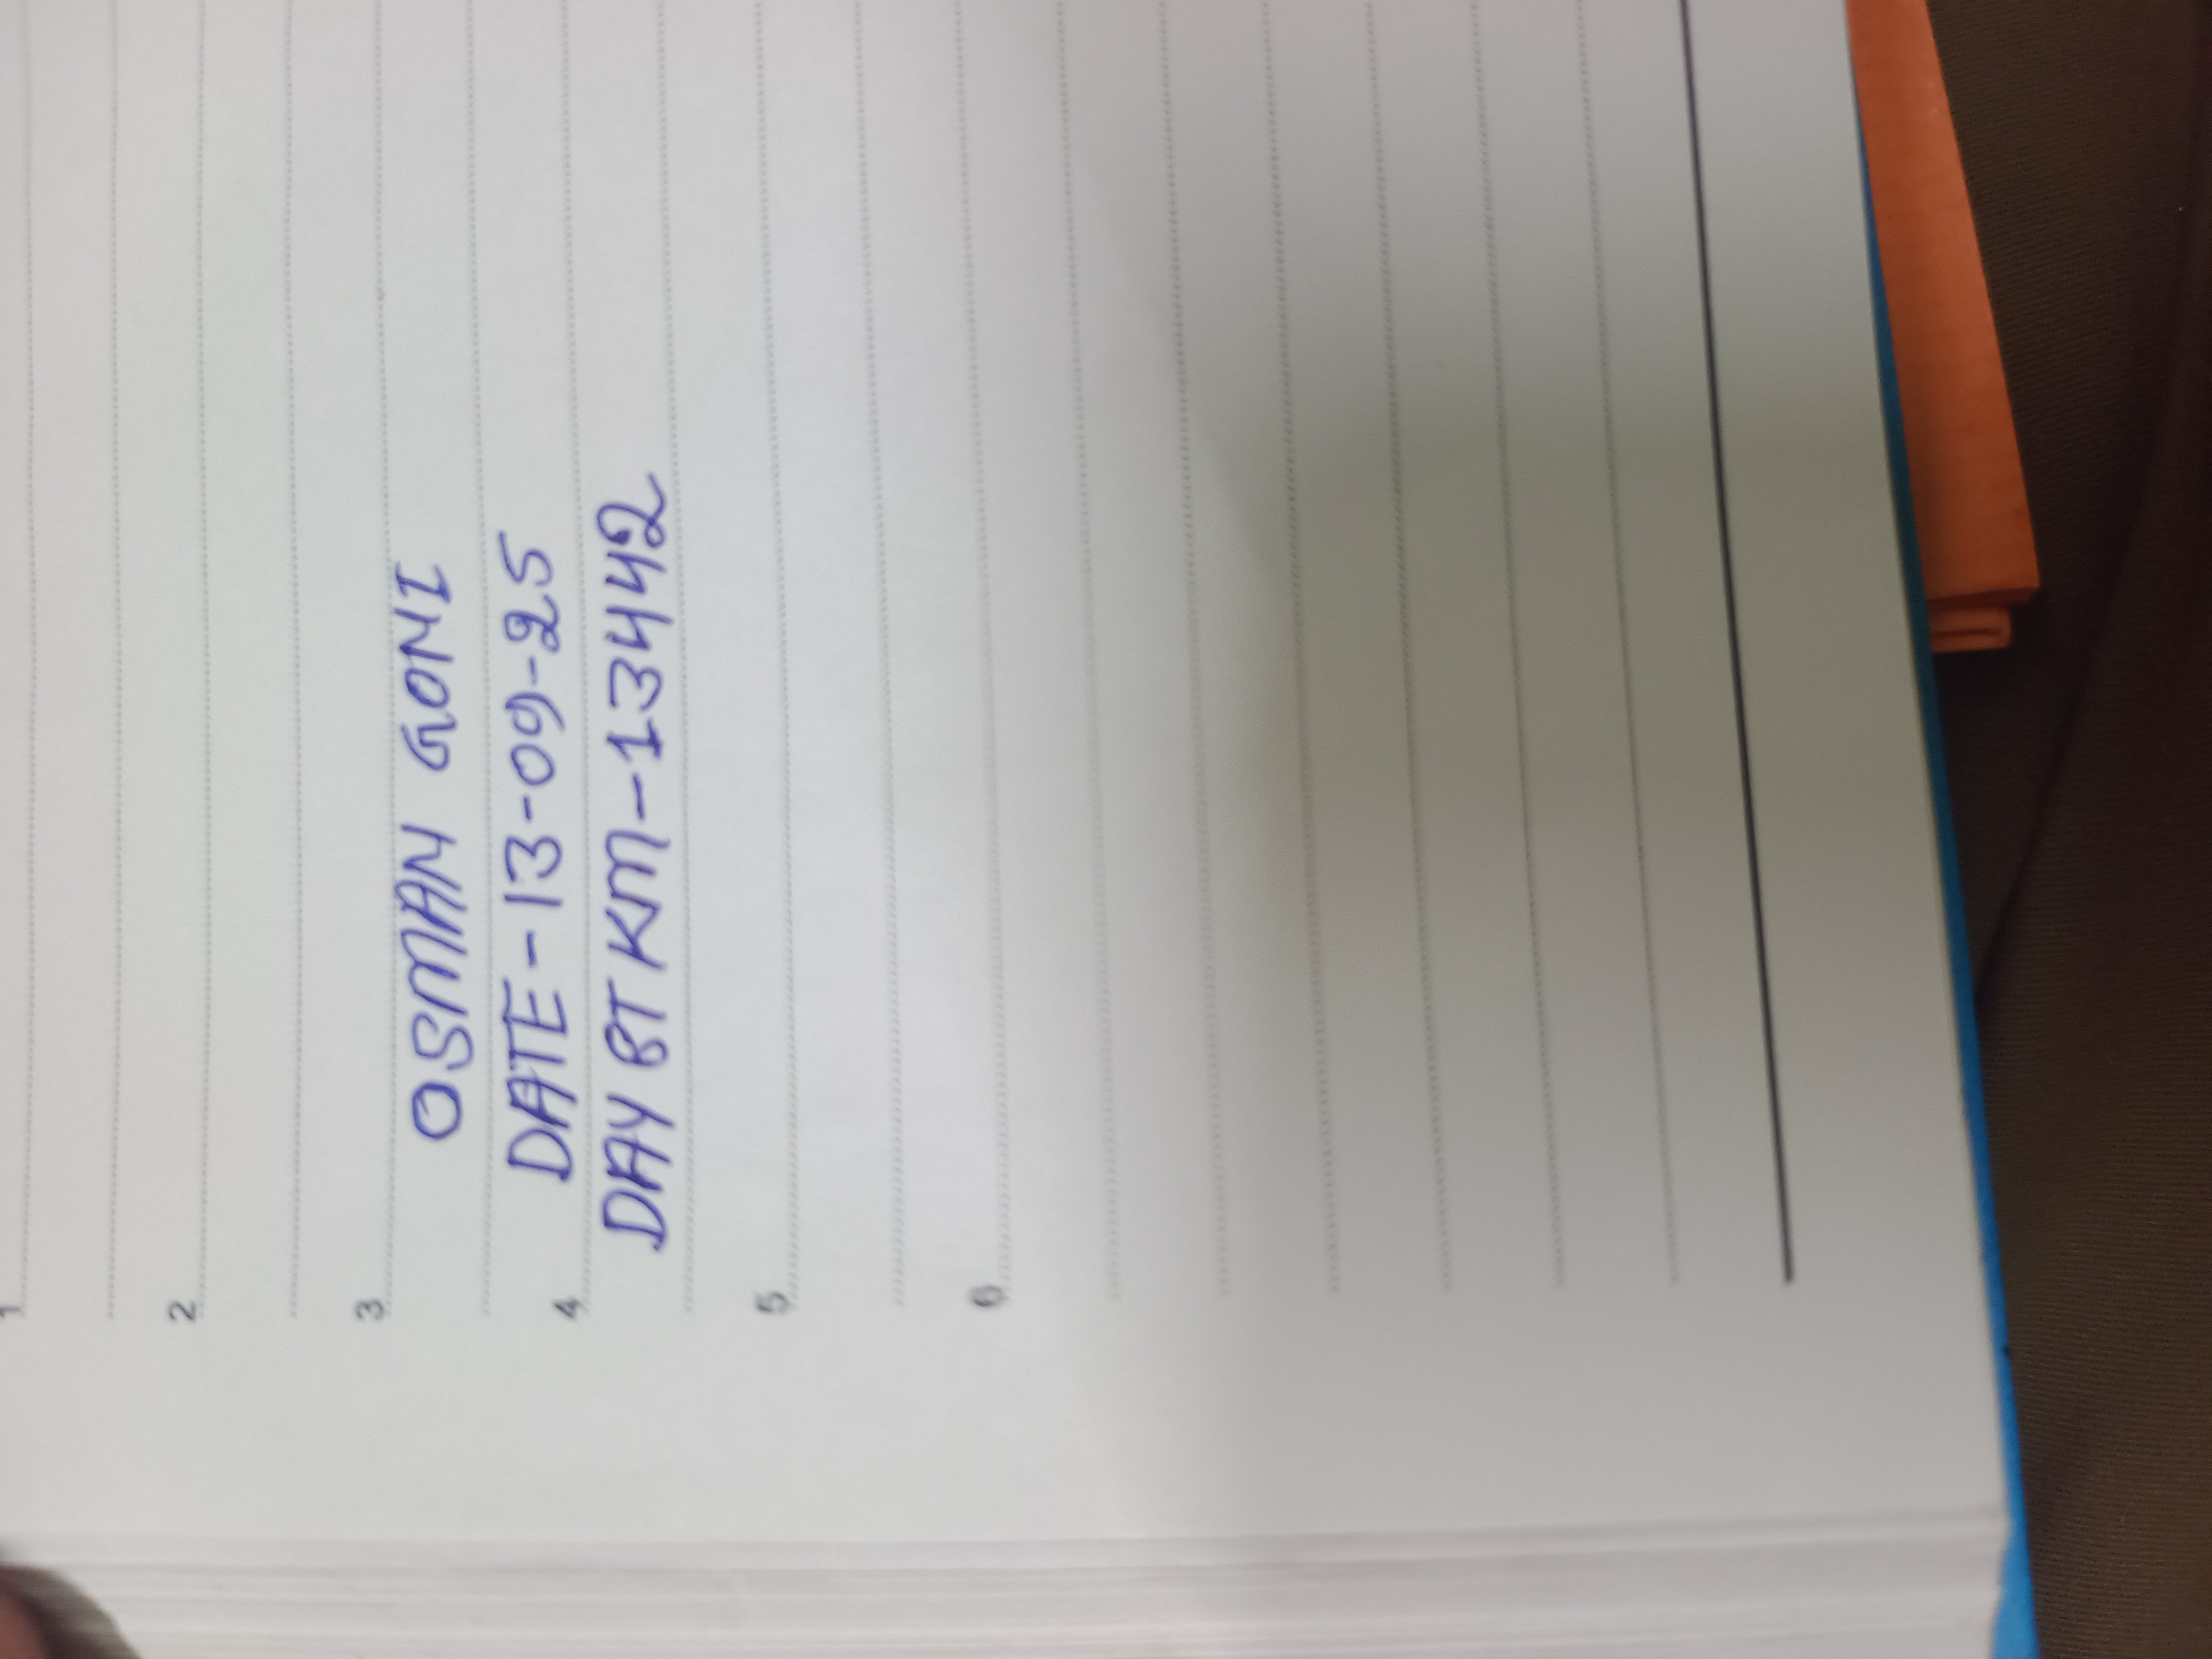 1
2
3
OSMAN GONI
DATE - 13-09-25
4
DAY 8T KM - 134442
5
6